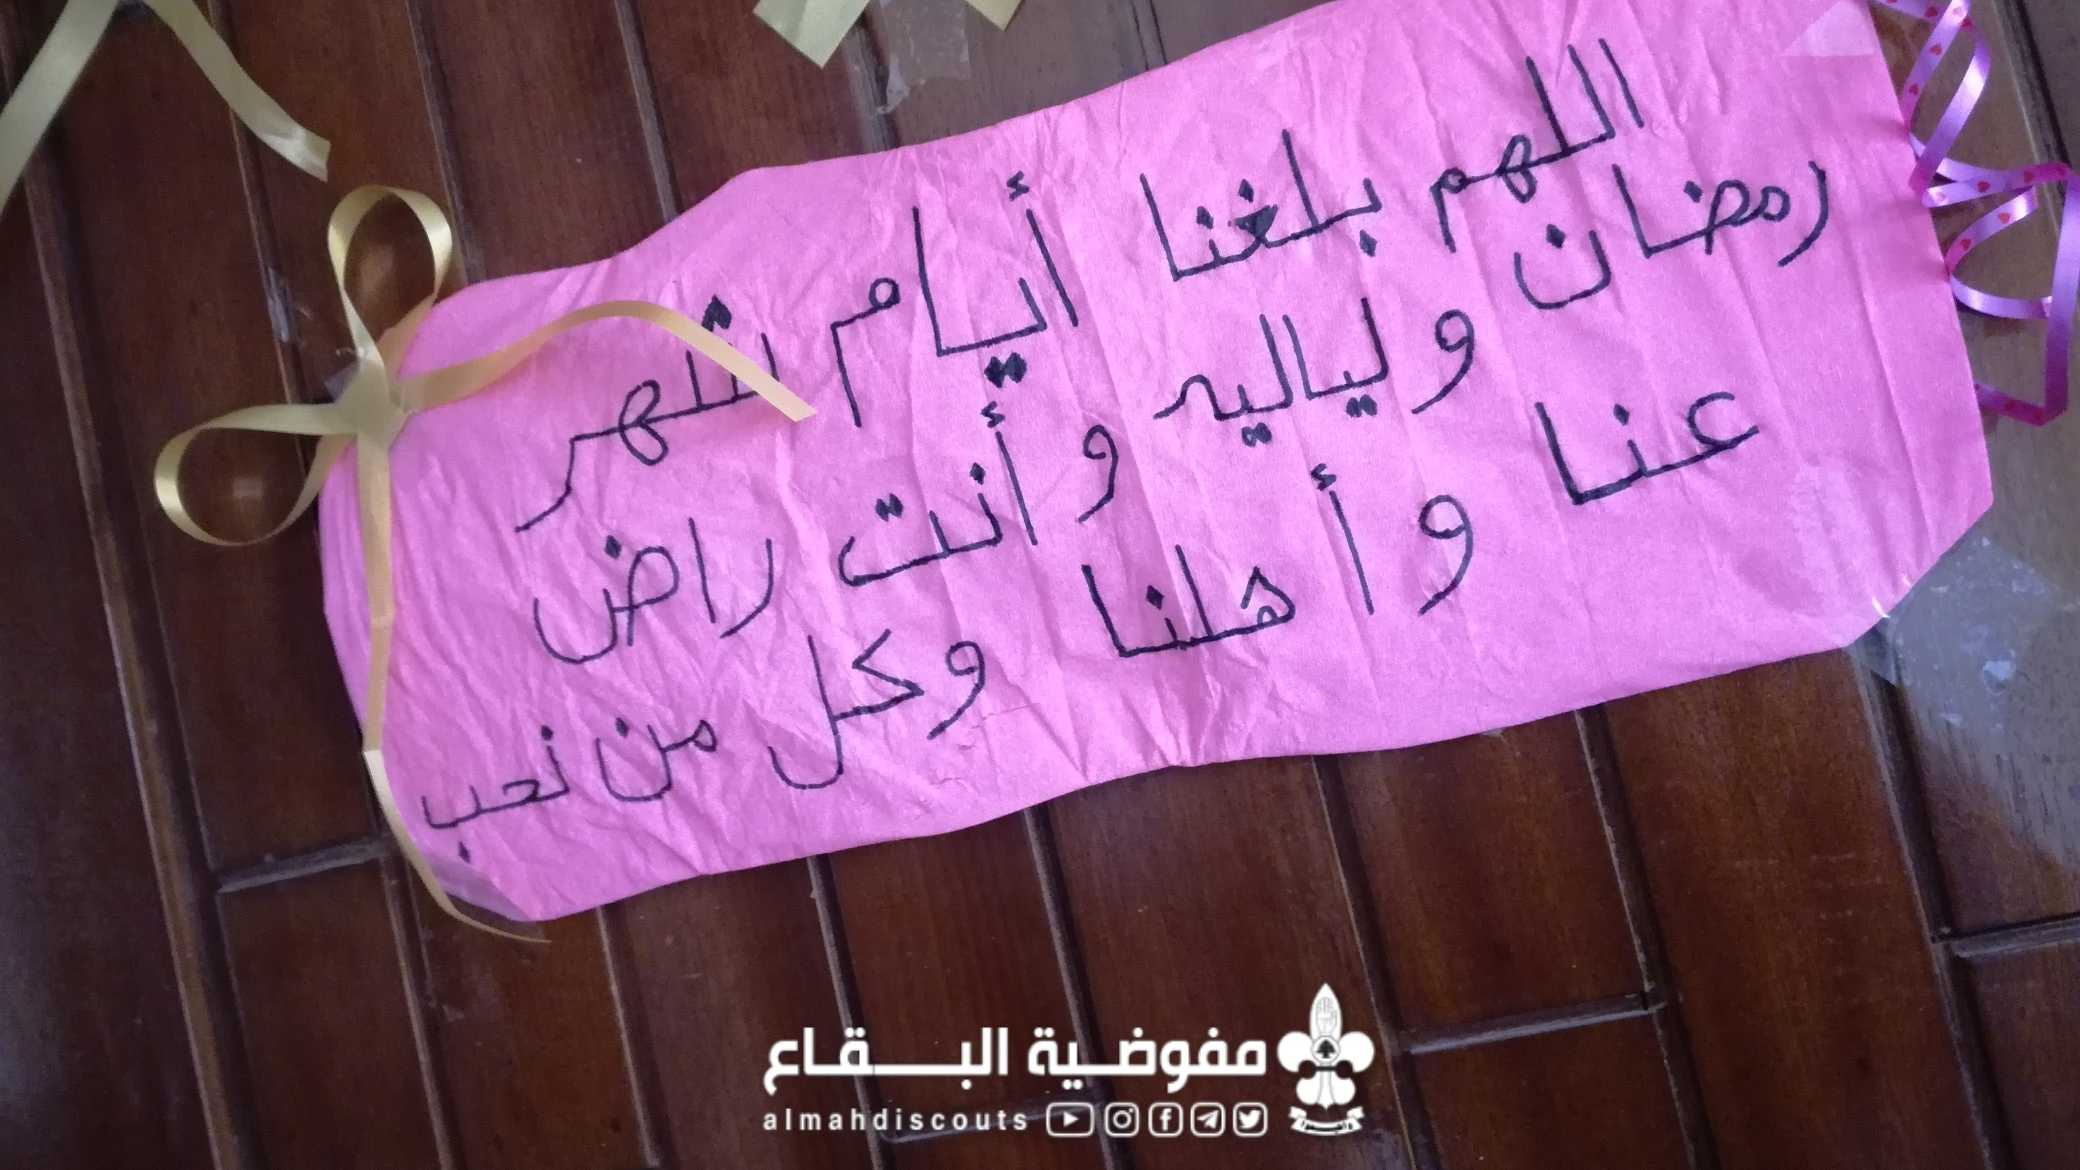 اللهم بلغنا أيام شهر
رمضان ولياليه وأنت راض
عنا وأهلنا وكل من نحب
مفوضية البقاع
almahdiscouts